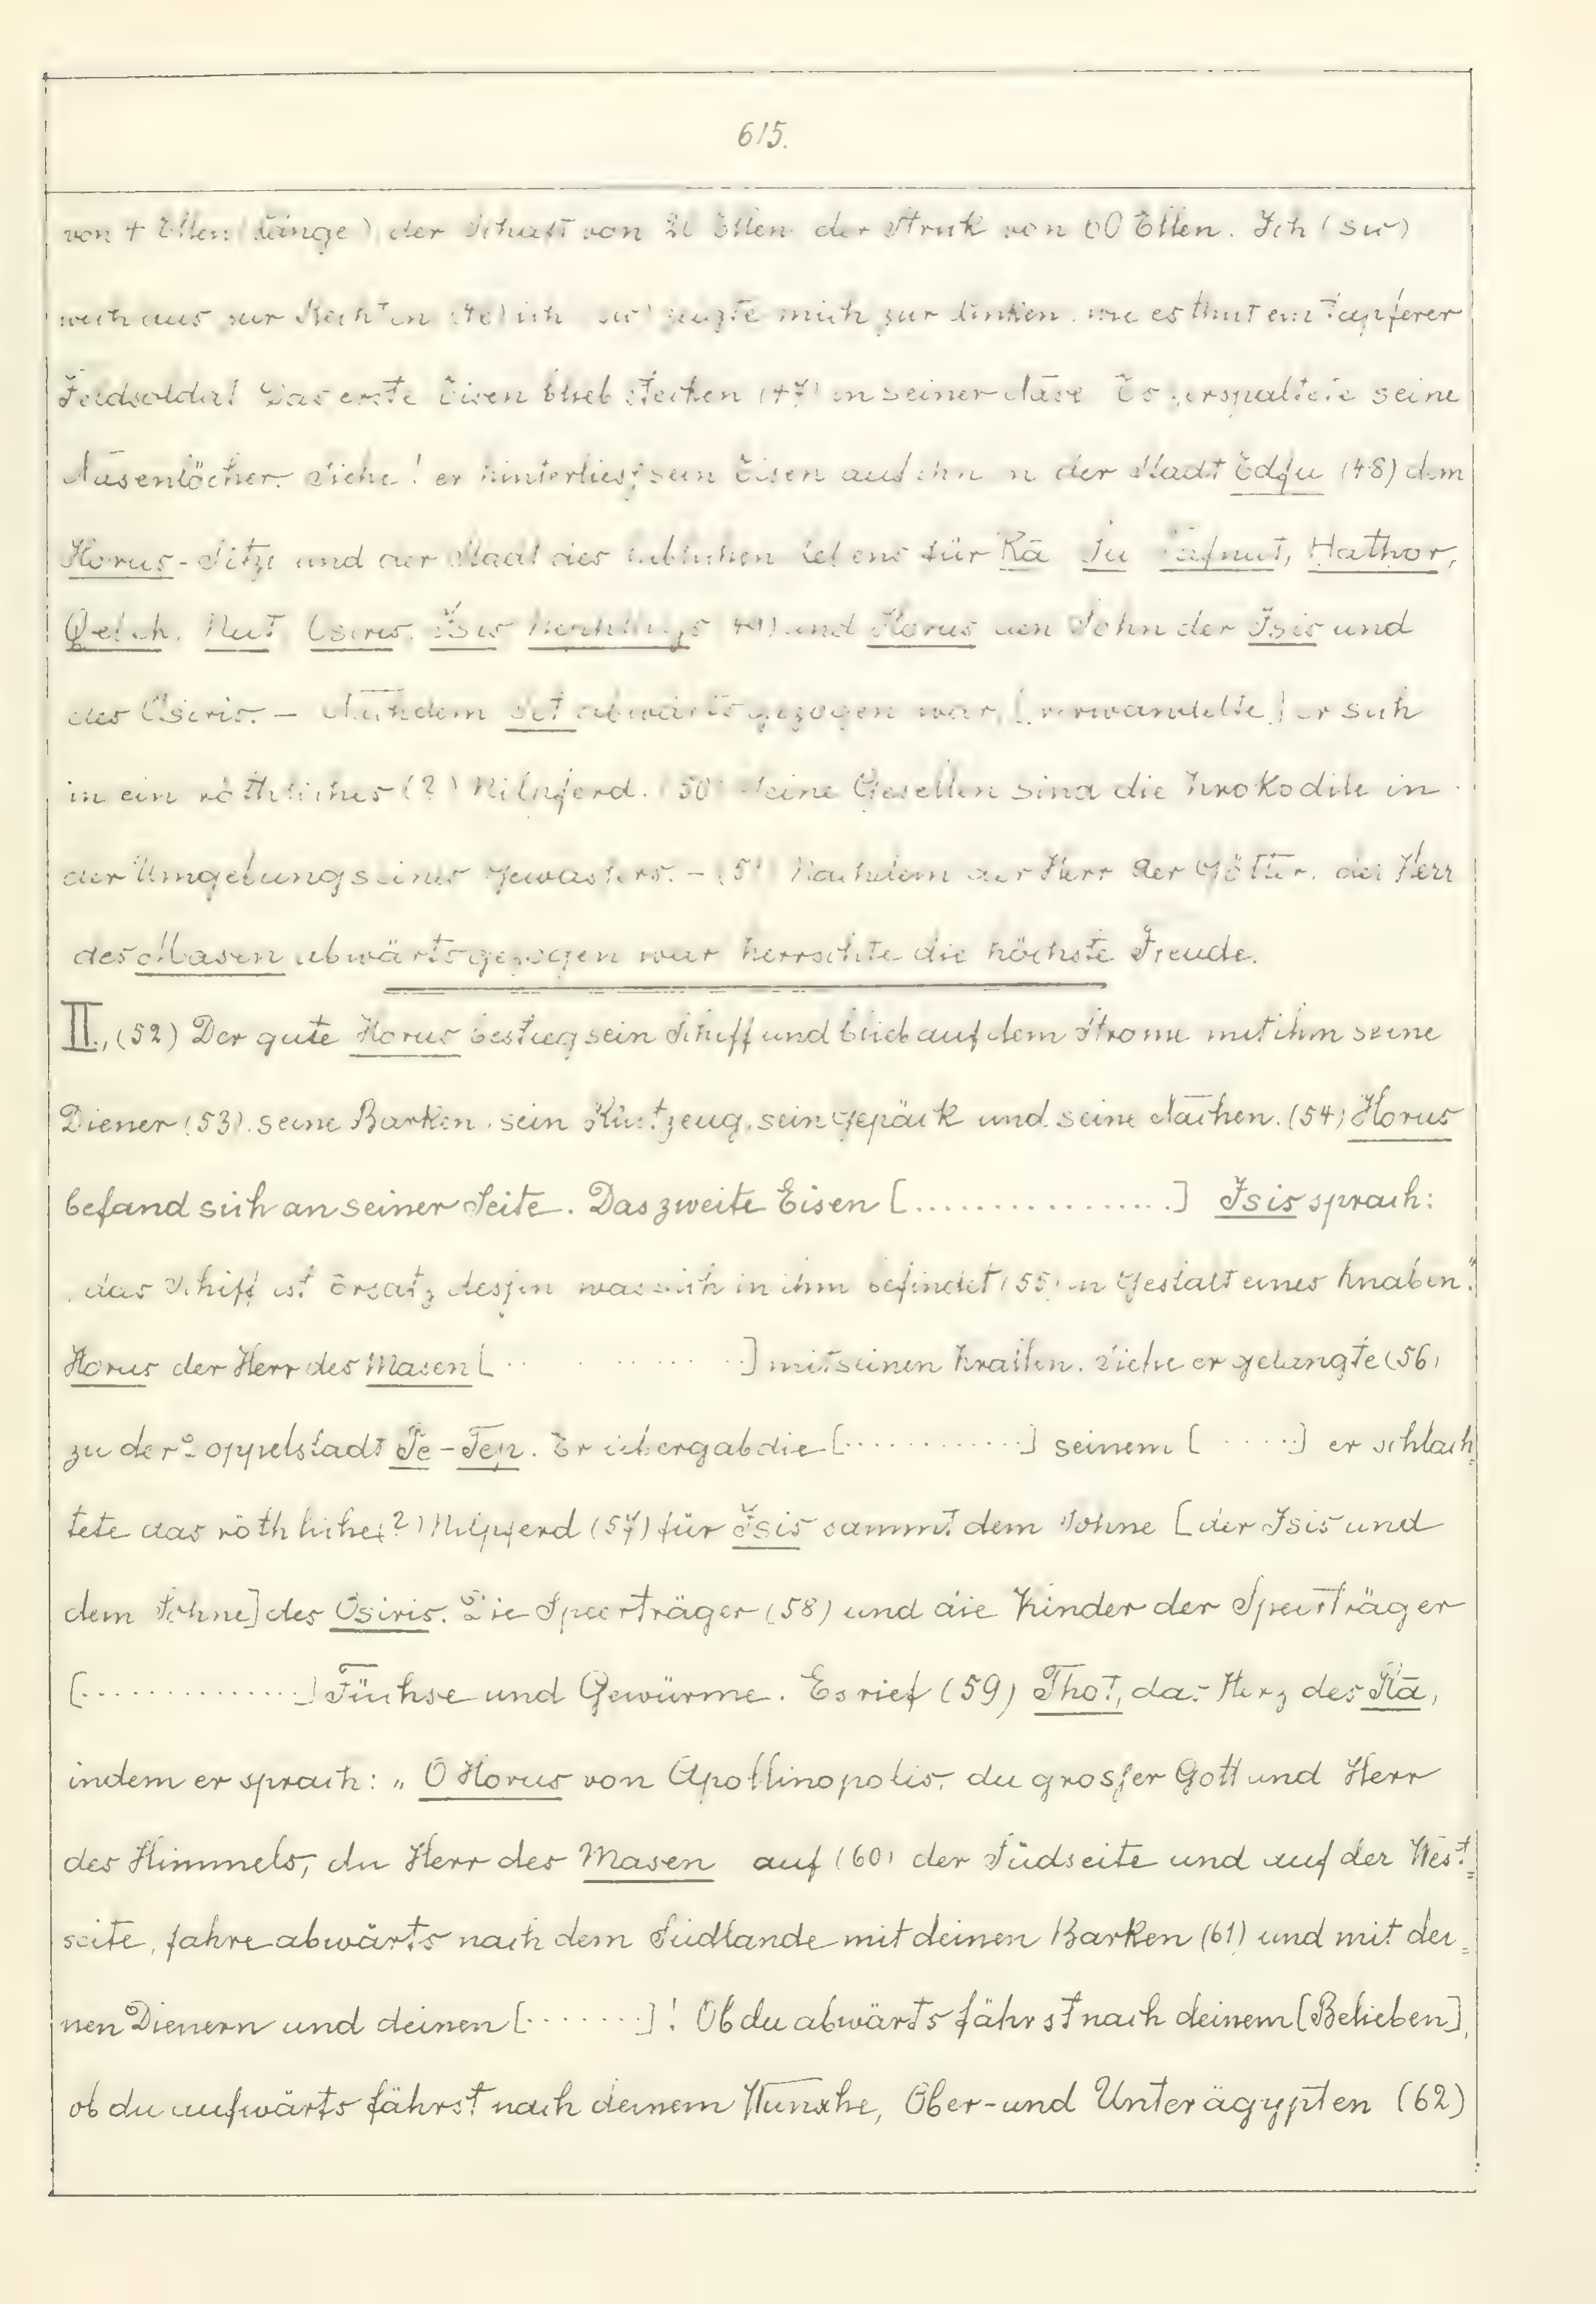 615.
von 4 Ellen (Länge), der Schaft von 20 Ellen der Strick von 60 Ellen. Ich (sic)
wich aus zur Rechten (46) ich (sic) zeigte mich zur linken, wie es thut ein tapferer
Feldsoldat. Das erste Eisen blieb stecken (47) in seiner Nase. Es zerspaltete seine
Nasenlöcher. Siehe! er hinterliesz sein Eisen auf ihn in der Stadt Edfu (48) dem
Horus-Sitze und der Stadt des lieblichen Lebens für Rā Šu Tafnut, Hathor,
Qebeh, Nut, Osiris, Isis, Nephthys (49) und Horus den Sohn der Isis und
des Osiris. – Nachdem Set abwärts gezogen war, [verwandelte] er sich
in ein röthliches (?) Nilpferd. (50) Seine Gesellen sind die Krokodile in
der Umgebung seines Gewässers. – (51) Nachdem der Herr der Götter, der Herr
des Masen abwärts gezogen war herrschte die höchste Freude.
II., (52) Der gute Horus bestieg sein Schiff und blieb auf dem Strome mit ihm seine
Diener (53), seine Barken, sein Rüstzeug, sein Gepäck und seine Nachen. (54) Horus
befand sich an seiner Seite. Das zweite Eisen [.................] Isis sprach:
„das Schiff ist Ersatz dessen was sich in ihm befindet (55) in Gestalt eines Knaben."
Horus der Herr des Masen [.................] mit seinen Krallen. Siehe er gelangte (56)
zu der Doppelstadt Pe-Tep. Er übergab die [.............] seinem [......] er schlach=
tete das röthliche (?) Nilpferd (57) für Isis sammt dem Sohne [der Isis und
dem Sohne] des Osiris. Die Speerträger (58) und die Kinder der Speerträger
[...............] Füchse und Gewürme. Es rief (59) Thot, das Herz des Rā,
indem er sprach: „O Horus von Apollinopolis, du grosser Gott und Herr
des Himmels, du Herr des Masen auf (60) der Südseite und auf der West=
seite, fahre abwärts nach dem Südlande mit deinen Barken (61) und mit dei=
nen Dienern und deinen [........]! Ob du abwärts fährst nach deinem [Belieben],
ob du aufwärts fährst nach deinem Wunsche, Ober- und Unterägypten (62)